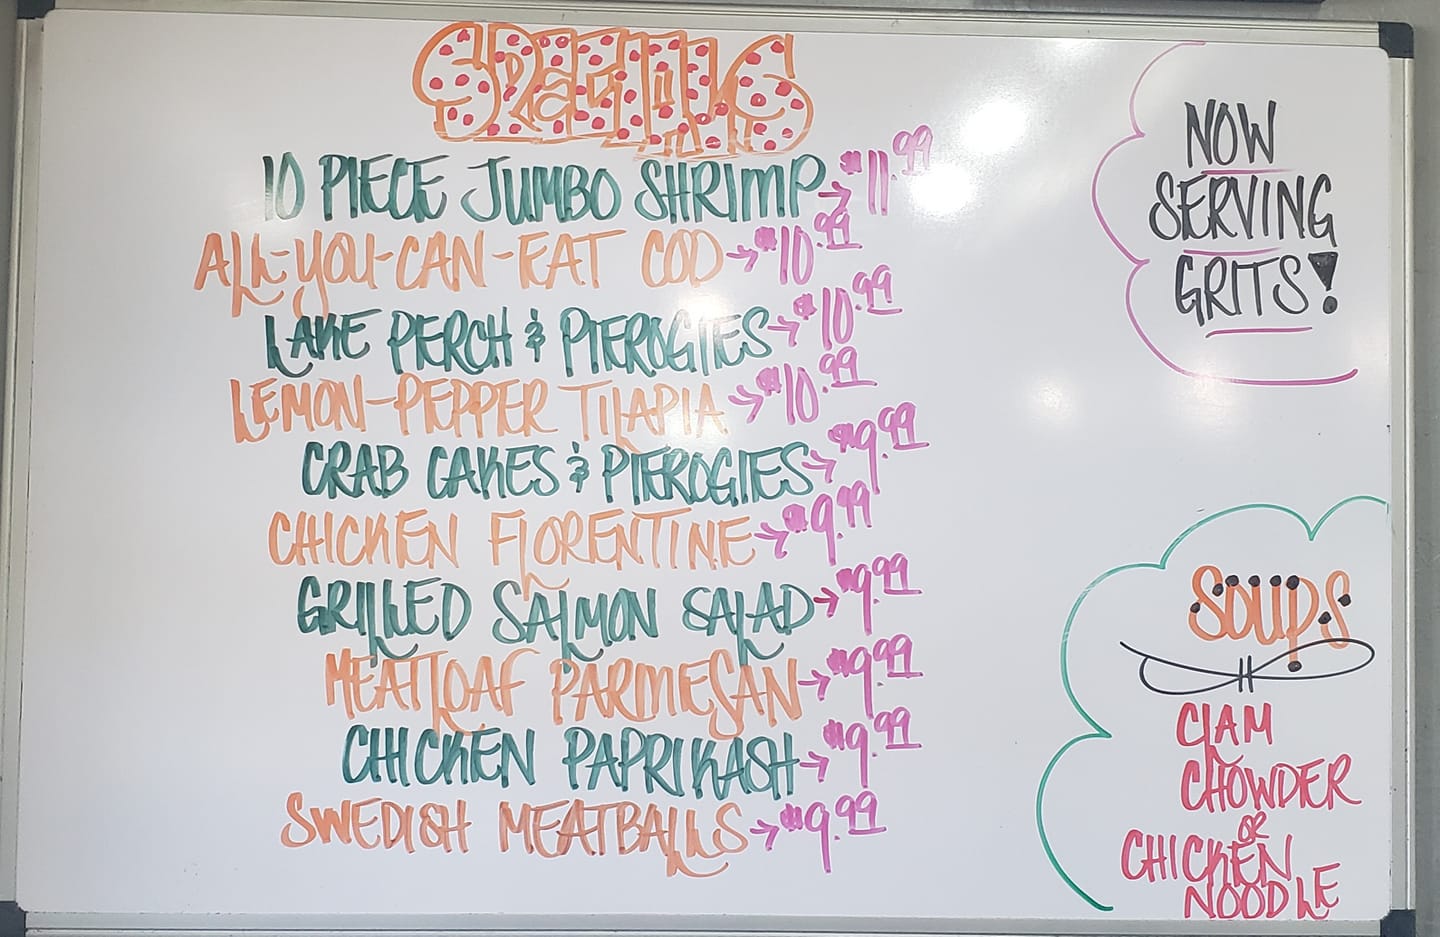 SPECIALS
10 PIECE JUMBO SHRIMP→$11.99
ALL-YOU-CAN-EAT COD→$10.99
LAKE PERCH & PIEROGIES→$10.99
LEMON-PEPPER TILAPIA→$10.99
CRAB CAKES & PIEROGIES→$9.99
CHICKEN FLORENTINE→$9.99
GRILLED SALMON SALAD→$9.99
MEATLOAF PARMESAN→$9.99
CHICKEN PAPRIKASH→$9.99
SWEDISH MEATBALLS→$9.99
NOW
SERVING
GRITS!
SOUPS
CLAM
CHOWDER
OR
CHICKEN
NOODLE